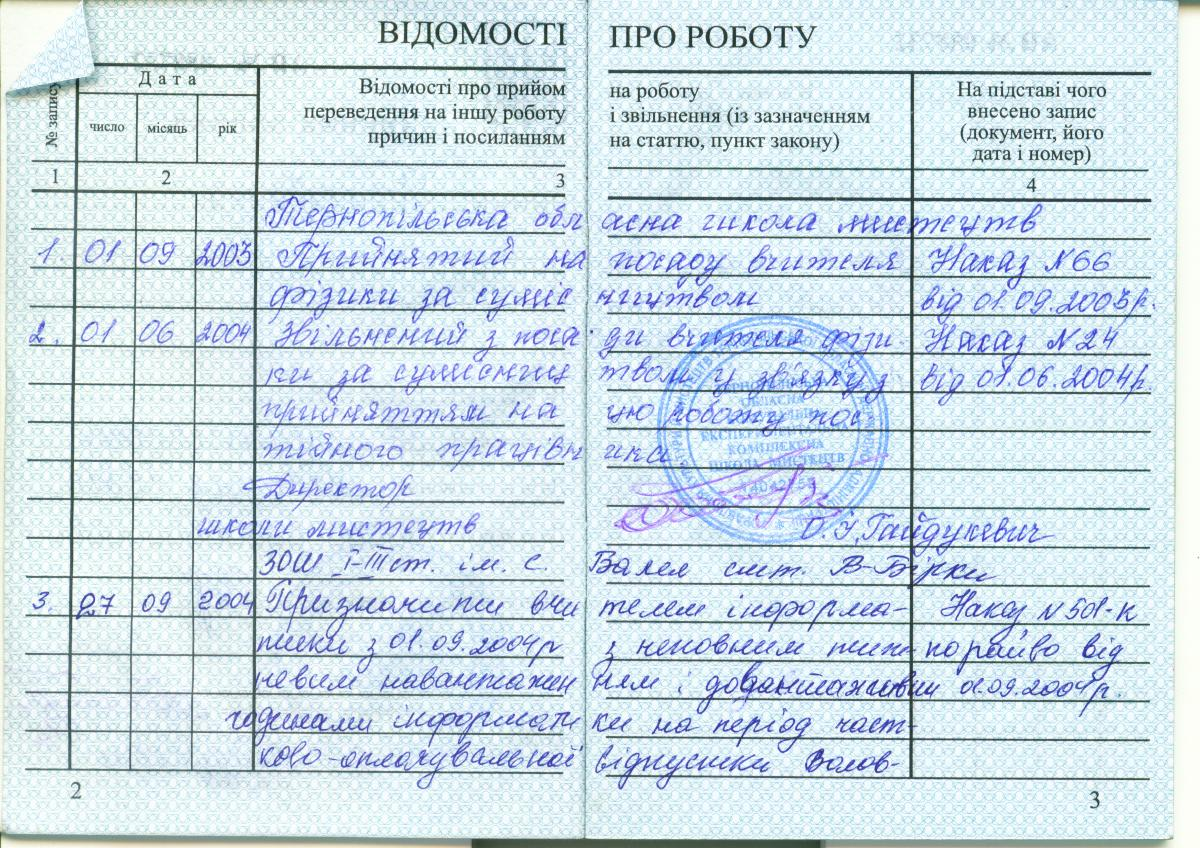 ВІДОМОСТІ ПРО РОБОТУ
№ запису
Дата
число місяць рік
Відомості про прийом на роботу
переведення на іншу роботу і звільнення (із зазначенням
причин і посиланням на статтю, пункт закону)
На підставі чого
внесено запис
(документ, його
дата і номер)
1 2 3 4
Тернопільська обласна школа мистецтв
1. 01 09 2003 Прийнятий на посаду вчителя Наказ №66
фізики за сумісництвом від 01.09.2003р.
2. 01 06 2004 Звільнений з посади вчителя фізи- Наказ №24
ки за сумісництвом у зв'язку з від 01.06.2004р.
прийняттям на цю роботу пос
тійного працівника
Директор
школи мистецтв О.І.Гайдукевич
ЗОШ І-ІІІст. ім. С. Балея смт. В-Бірки
3. 27 09 2004 Призначити вчителем інформа- Наказ №501-к
тики з 01.09.2004р з неповним тиж- по райво від
невим навантаженням і довантажений 01.09.2004р.
годинами інформатики на період част-
ково-оплачувальної відпустки Волов-
ТЕРНОПІЛЬСЬКА
ОБЛАСНА
ЕКСПЕРИМЕНТАЛЬНА
КОМПЛЕКСНА
ШКОЛА МИСТЕЦТВ
2 3